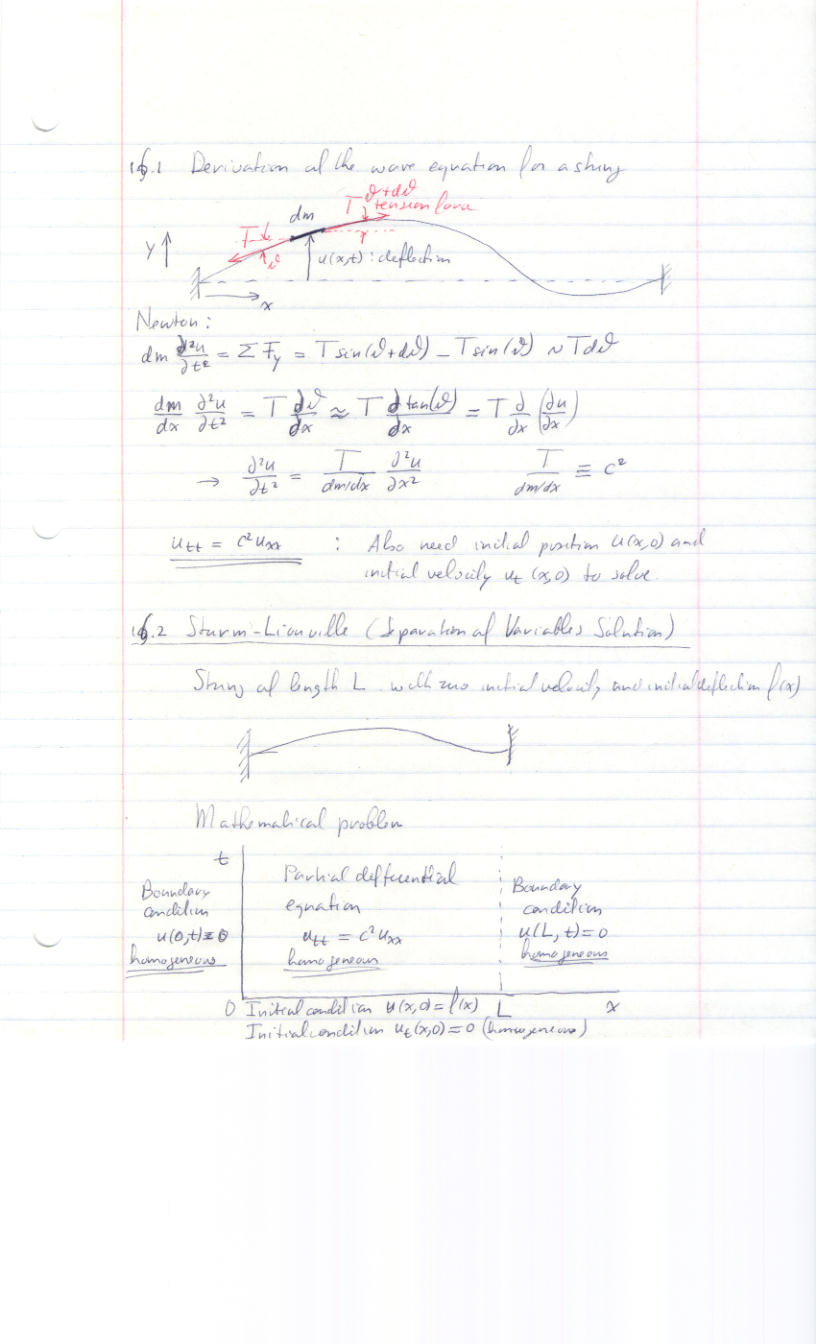 16.1 Derivation of the wave equation for a string
T ϑ+dϑ
tension force
dm
T
ϑ
y
u(x,t) : deflection
x
Newton :
dm ∂²u/∂t² = Σ F_y = T sin(ϑ+dϑ) − T sin(ϑ) ~ T dϑ
dm/dx ∂²u/∂t² = T dϑ/dx ≈ T d tan(ϑ)/dx = T ∂/∂x (∂u/∂x)
→ ∂²u/∂t² = T/(dm/dx) ∂²u/∂x² T/(dm/dx) ≡ c²
u_tt = c² u_xx : Also need initial position u(x,0) and
initial velocity u_t (x,0) to solve.
16.2 Sturm-Liouville (Separation of Variables Solution)
String of length L with zero initial velocity and initial deflection f(x)
Mathematical problem
t
Boundary
condition
u(0,t)=0
homogeneous
Partial differential
equation
u_tt = c² u_xx
homogeneous
Boundary
condition
u(L,t)=0
homogeneous
0 Initial condition u(x,0) = f(x) L x
Initial condition u_t(x,0) = 0 (homogeneous)